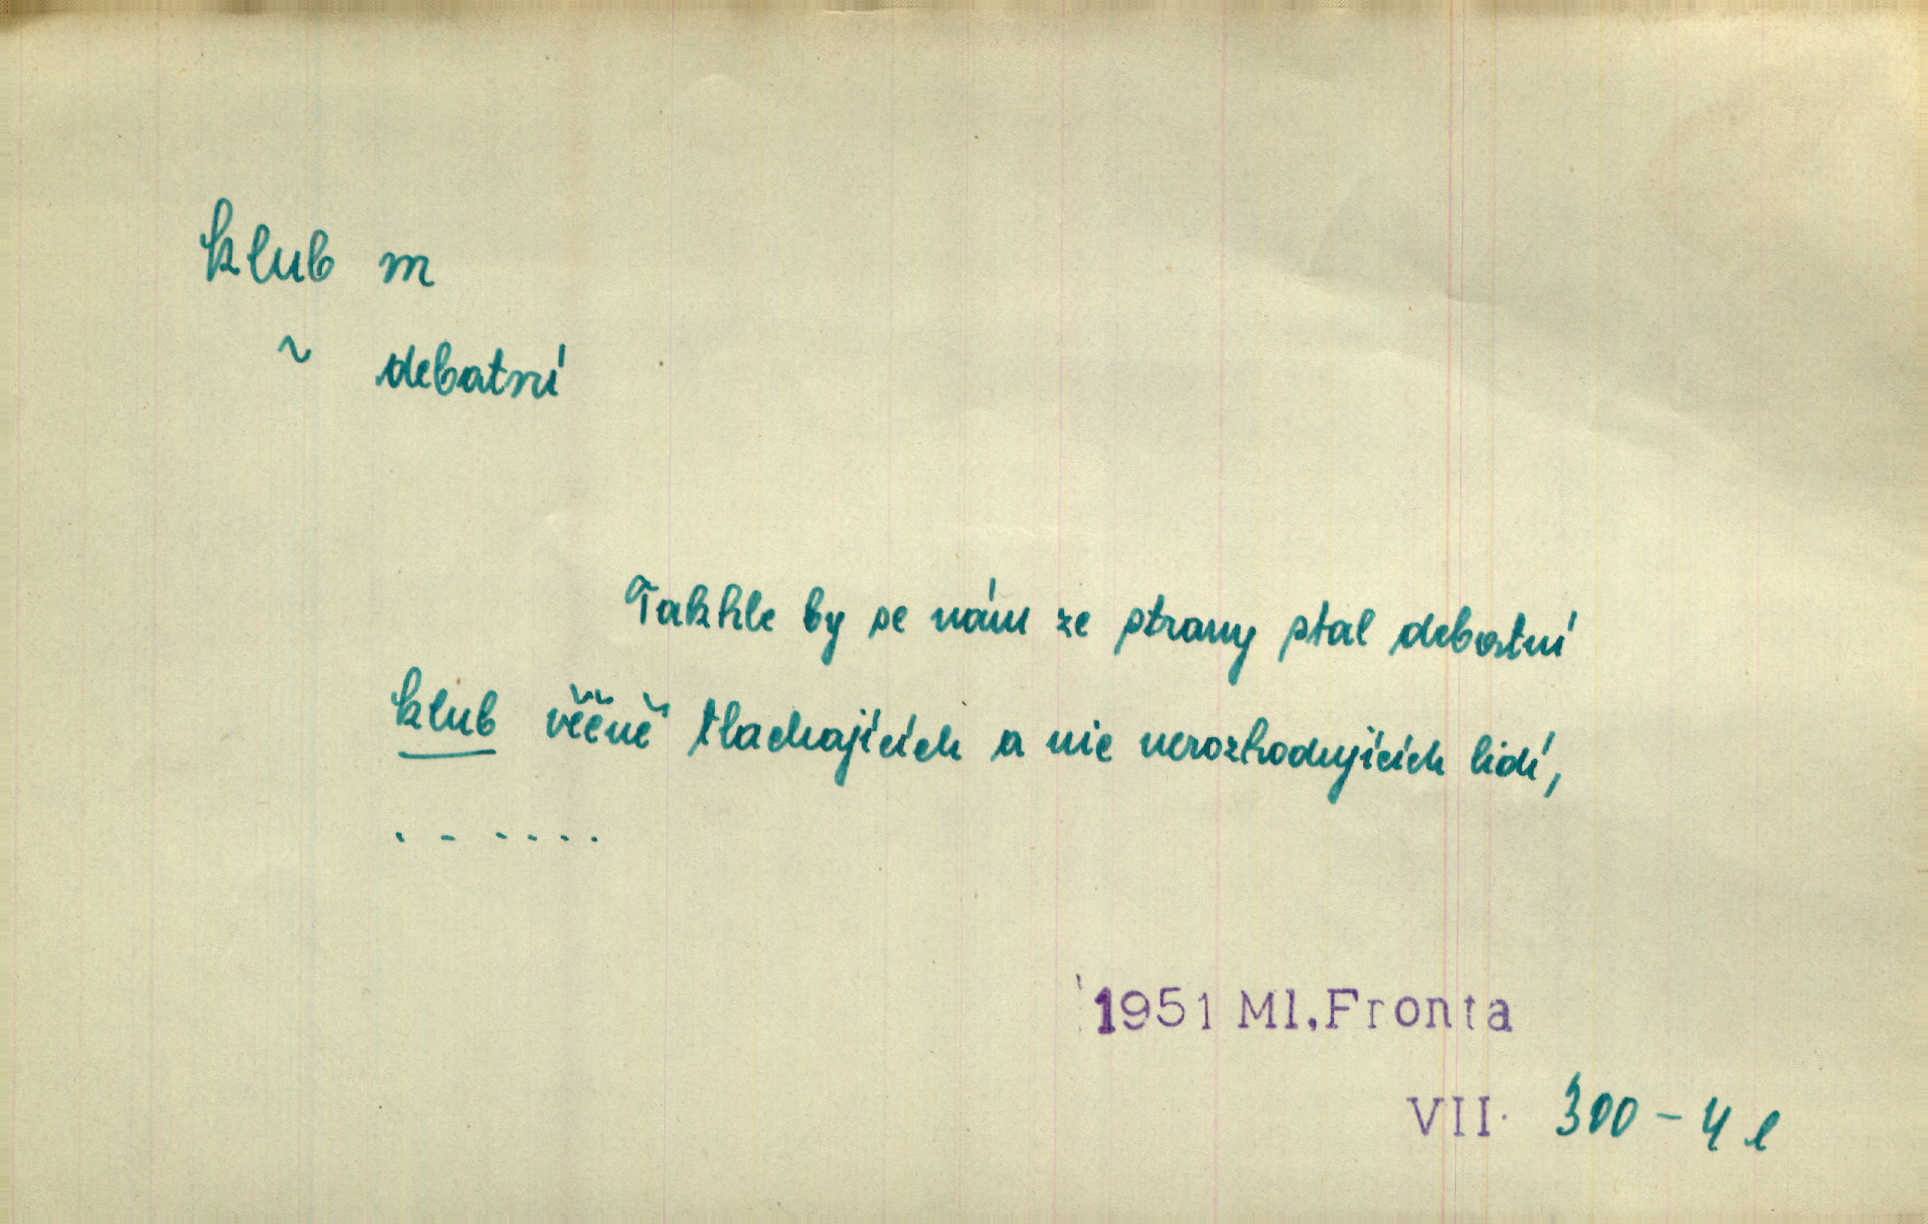 klub m
~ debatní
Takhle by se nám ze strany stal debatní
klub věčně tlachajících a nic nerozhodujících lidí,
. - . . . . .
1951 Ml.Fronta
VII. 300 - 4 l